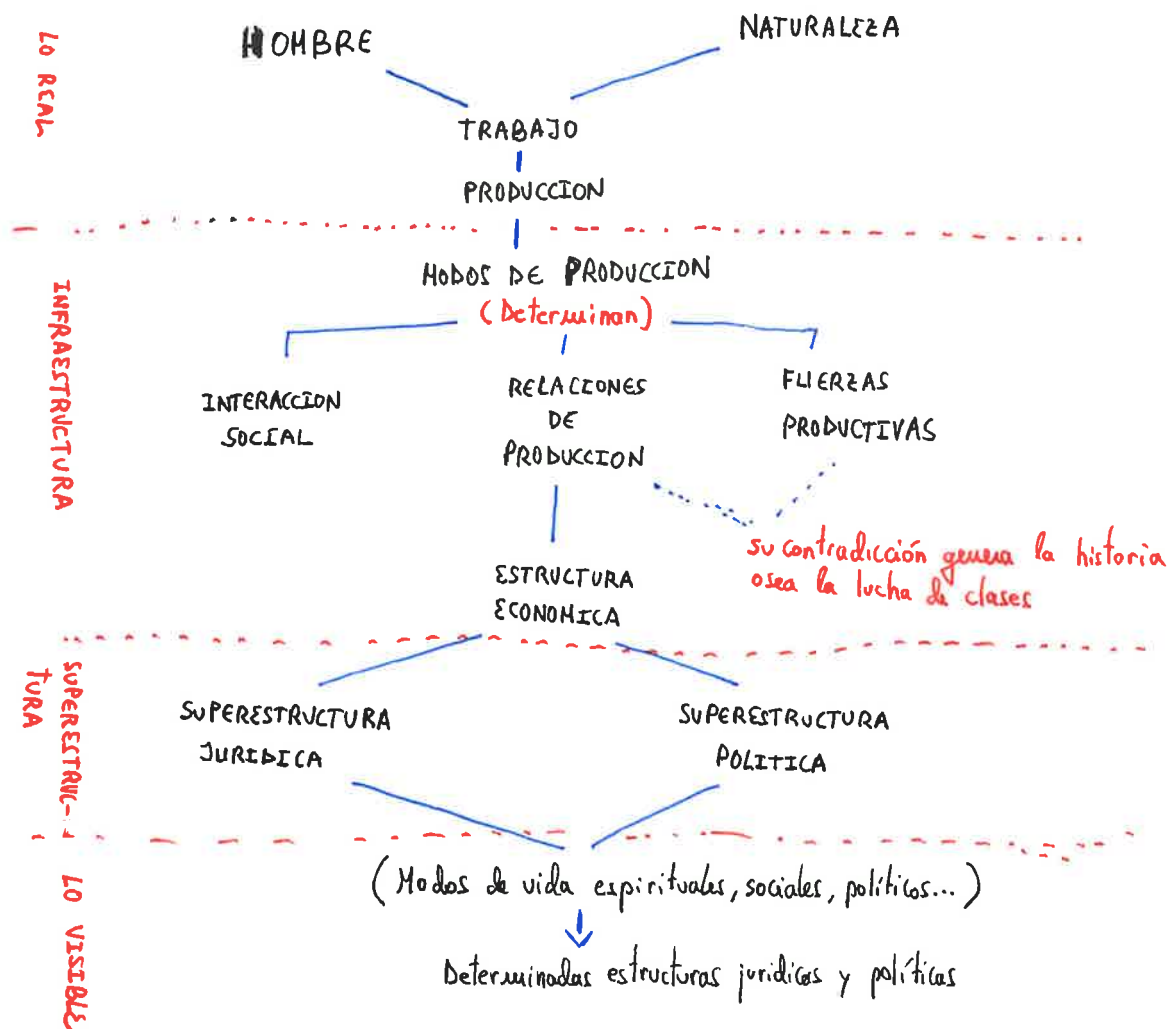 LO REAL
HOMBRE
NATURALEZA
TRABAJO
PRODUCCION
INFRAESTRUCTURA
MODOS DE PRODUCCION
(Determinan)
INTERACCION
SOCIAL
RELACIONES
DE
PRODUCCION
FUERZAS
PRODUCTIVAS
su contradicción genera la historia
osea la lucha de clases
ESTRUCTURA
ECONOMICA
SUPERESTRUC-
TURA
SUPERESTRUCTURA
JURIDICA
SUPERESTRUCTURA
POLITICA
LO VISIBLE
(Modos de vida espirituales, sociales, políticos...)
Determinadas estructuras juridicas y políticas